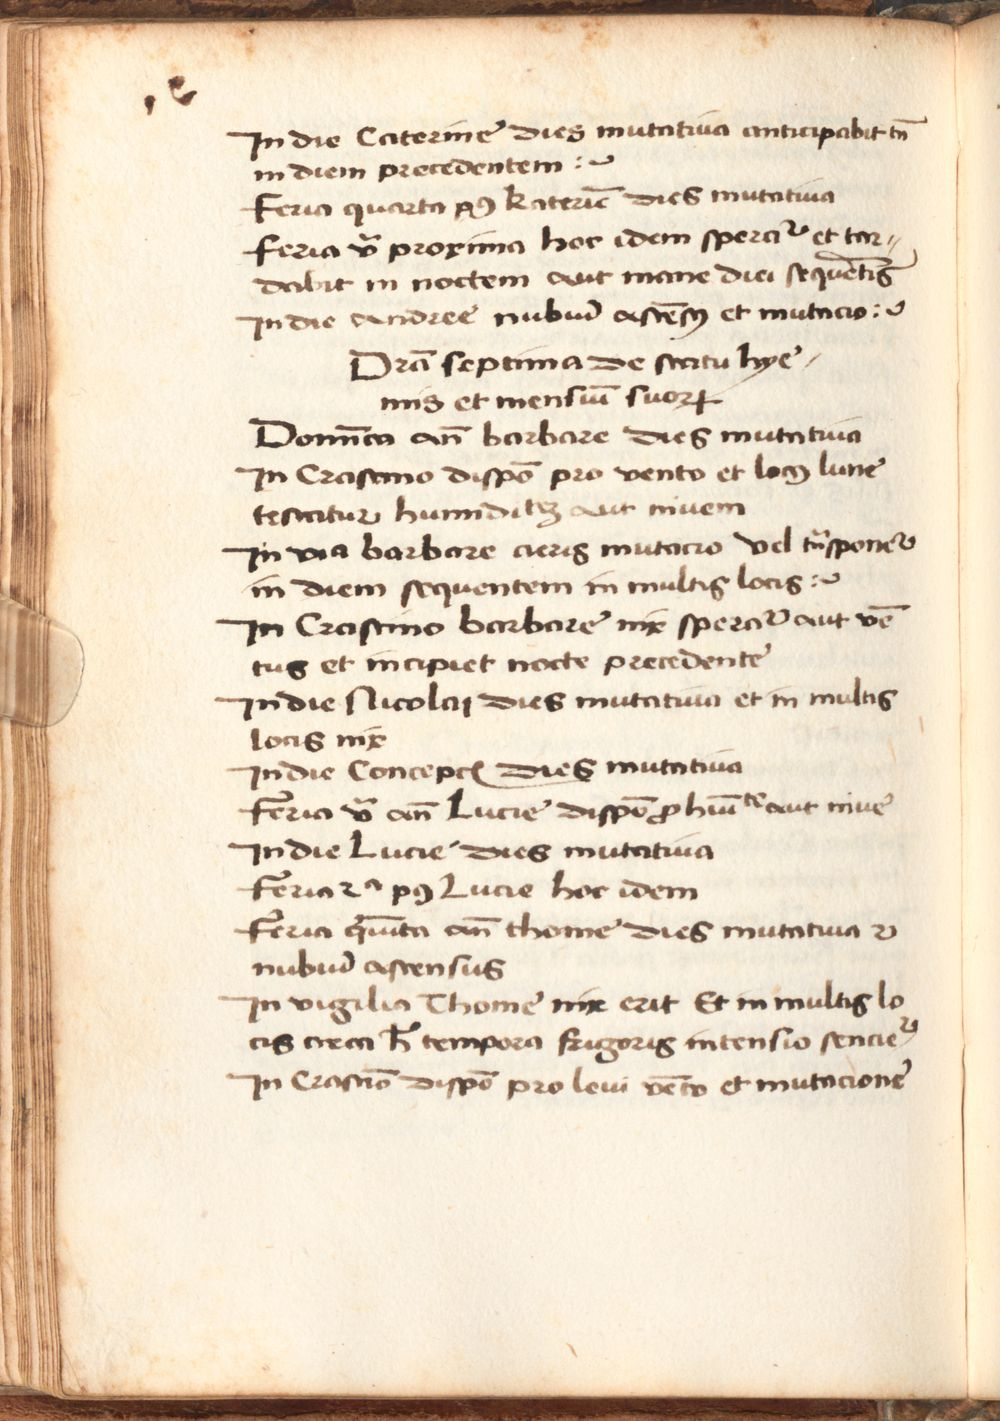 In die Caterine dies mutativa anticipabit tn̄
in diem precedentem :~
Feria quarta pꝯ Katerīe dies mutativa
feria v̄ proxima hoc idem speraᷣ et tar⸗
dabit in noctem aut mane diei sequētis
In die Andree nubiū ascēsꝯ et mutacio :~
Dr̄a septima de statu hye⸗
mis et mensiū suoꝝ
Domīca an̄ barbare dies mutativa
In Crastino dispō pro vento et locꝯ lune
testatur humiditeꝫ aut nivem
In via barbare aeris mutacio vel tn̄sponeᷣ
in diem sequentem in multis locis :~
In Crastino barbare nix speraᷣ aut vē
tus et incipiet nocte precedente
In die Nicolai dies mutativa et in multis
locis nix
In die Concepcī dies mutativa
Feria v̄ an̄ Lucie dispō ꝓ hiūte aut nive
In die Lucie dies mutativa
Feria 2a pꝯ Lucie hoc idem
Feria qīuta an̄ thome dies mutativa ⁊
nubiū ascensus
In vigilia Thome nix erit Et in multis lo
cis circa h̄ tempora frigoris intensio sencieᷣ
In Crastīo dispō pro levi vēto et mutacione